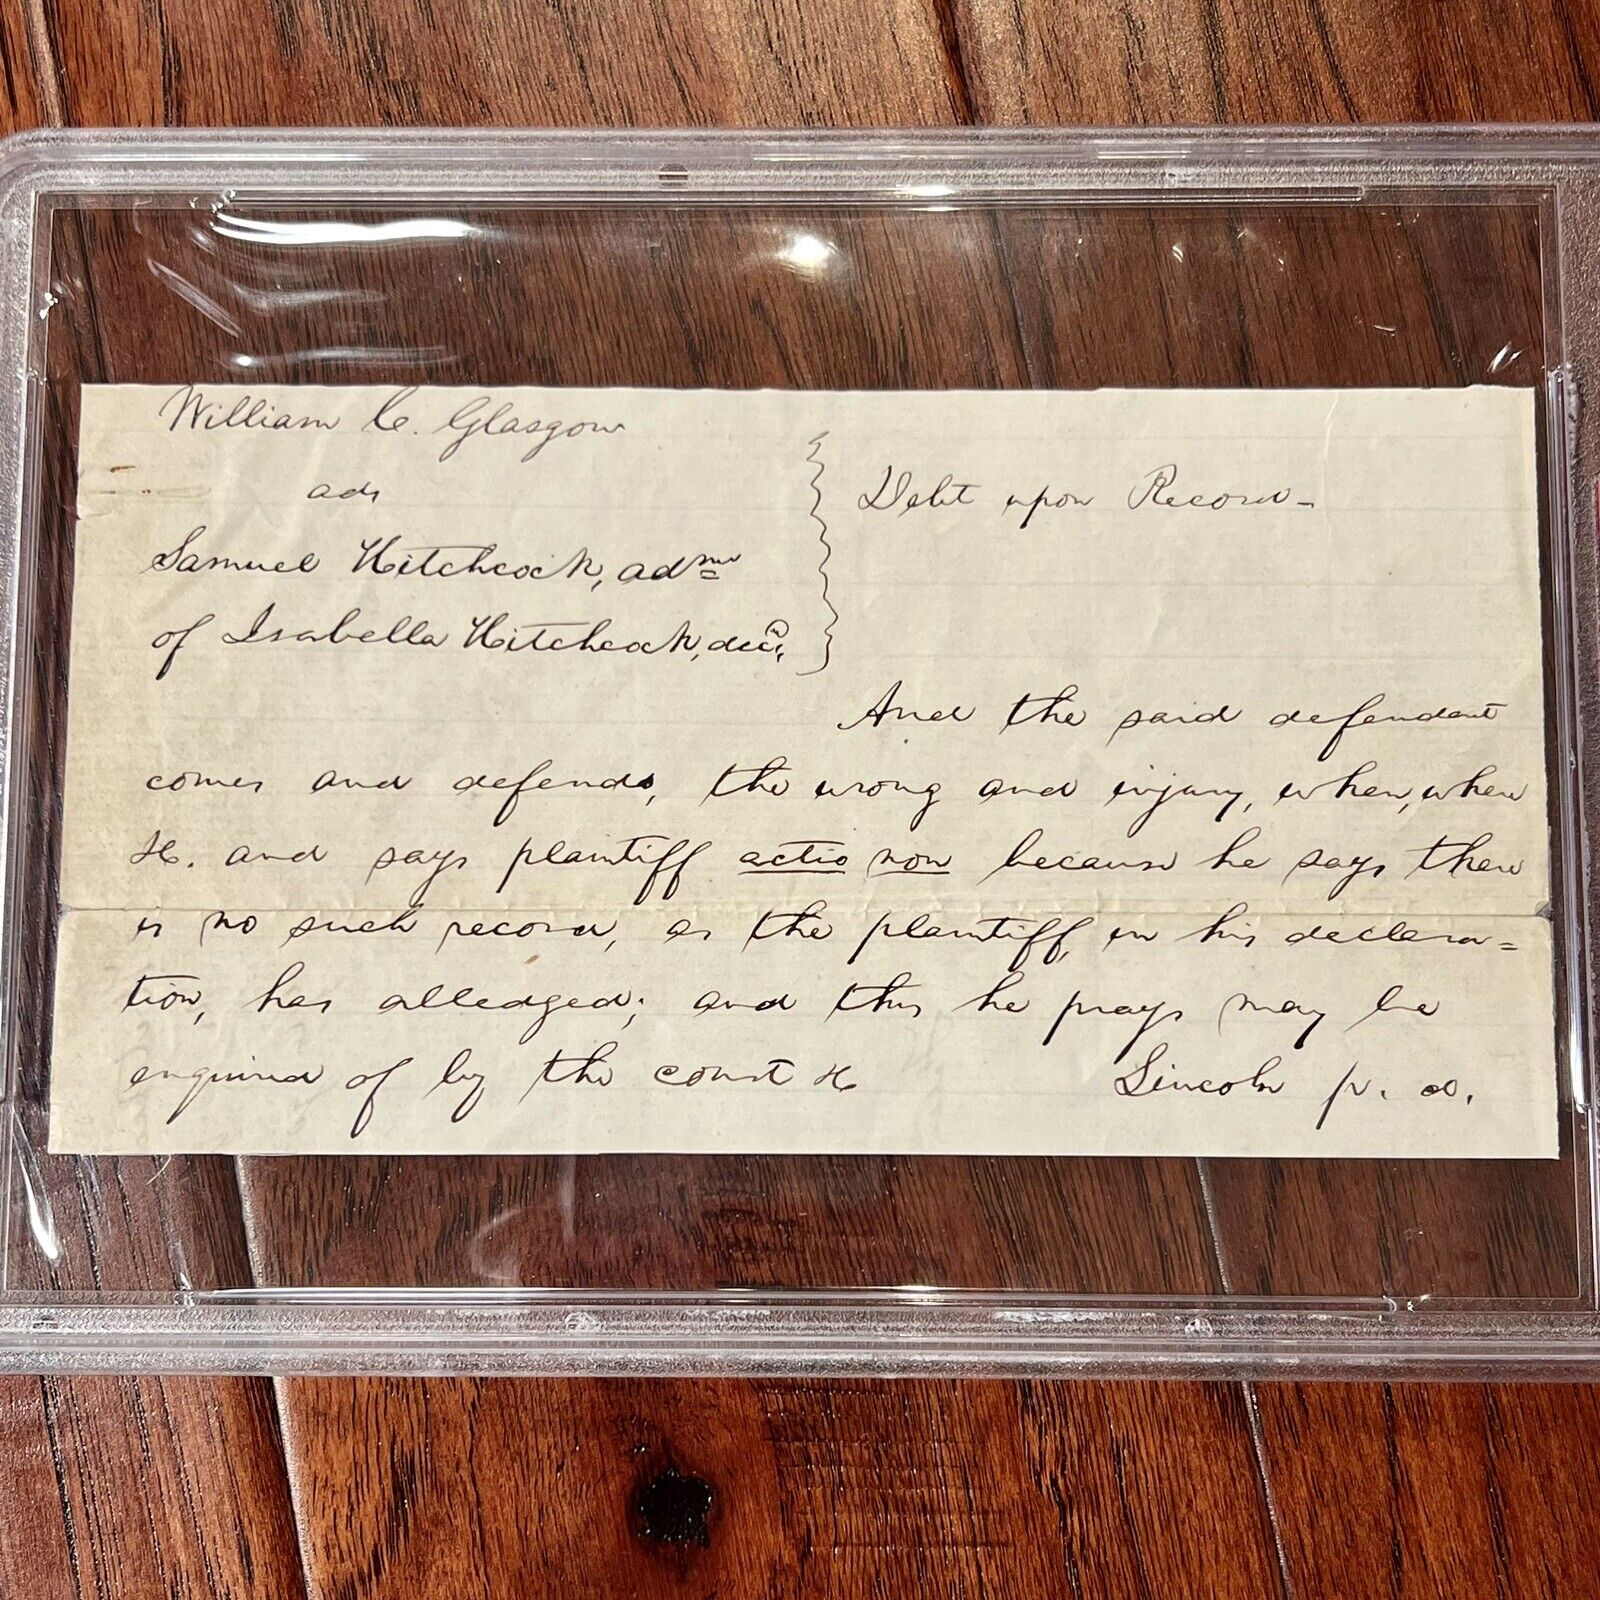 William C. Glasgow
ads
Samuel Hitchcock, admr
of Isabella Hitchcock, decd,
Debt upon Record -
And the said defendant
comes and defends, the wrong and injury, when, where
&c. and says plaintiff actio non because he says there
is no such record, as the plaintiff, in his declara=
tion, has alledged; and this he prays may be
enquired of by the court &c
Lincoln p. d.